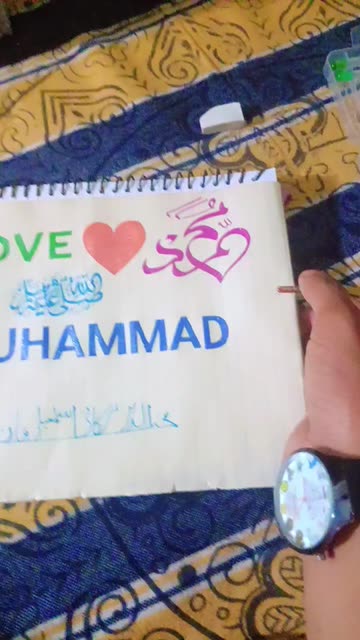 OVE ❤ محمد
ﷺ
UHAMMAD